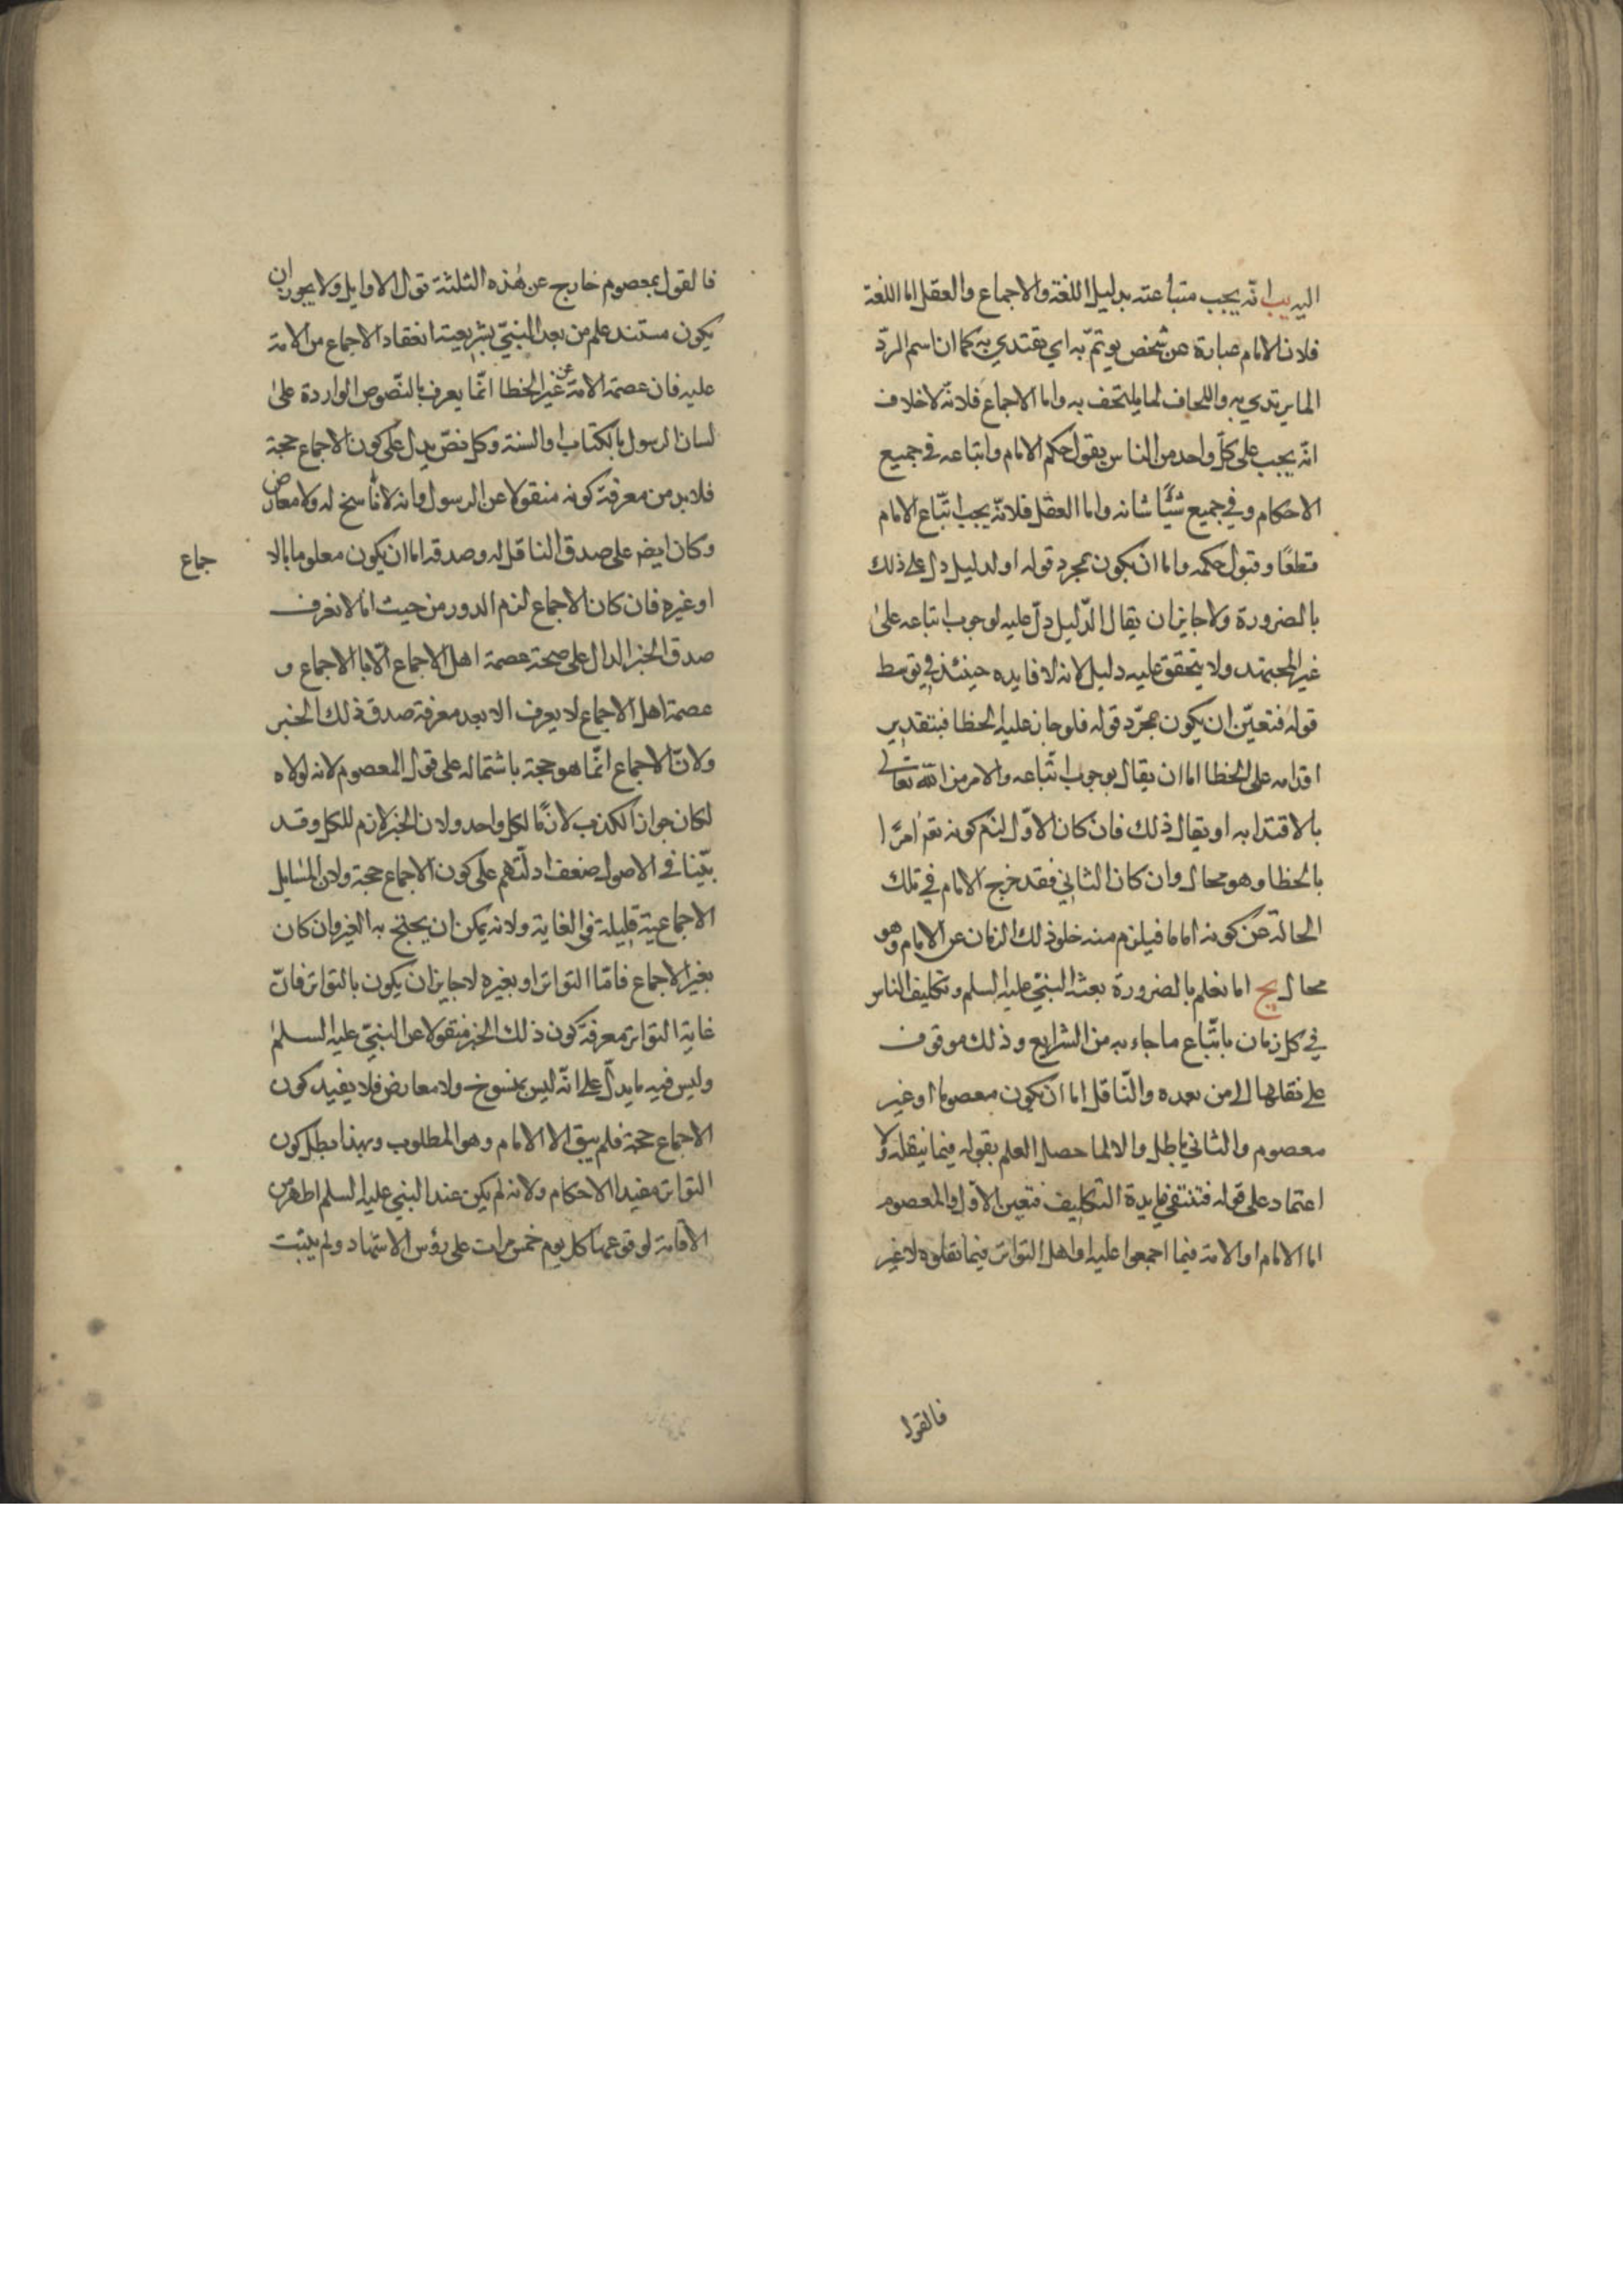 اليه يب انّه يجب متباعته بدليل اللغة والاجماع والعقل اما اللغة
فلان الامام عبارة عن شخص يوتمّ به اي يقتدي به كما ان اسم الردّ
الما يرتدي به واللحاف لما يلتحف به واما الاجماع فلانّه لا خلاف
انّه يجب على كلّ واحد من الناس بقول حكم الامام واتباعه في جميع
الاحكام وفي جميع شيًا شانه واما العقل فلانّه يجب اتّباع الامام
قطعًا وقبول حكمه واما ان يكون بمجرد قوله او لدليل دل على ذلك
بالضرورة ولا جايز ان يقال الدّليل دلّ عليه لوجوب اتباعه على
غير المجتهد ولا يتحقق عليه دليل لانه لا فايده حينئذ في توسط
قوله فتعيّن ان يكون بمجرّد قوله فلو جاز عليه الخطا فبتقدير
اقدامه على الخطا اما ان يقال بوجوب اتّباعه والامر من الله تعالى
بالاقتدا به او يقال ذلك فان كان الاوّل لزم كونه تعالى امرًا
بالخطا وهو محال وان كان الثاني فقد خرج الامام في تلك
الحالة عن كونه اماما فيلزم منه خلو ذلك الزمان عن الامام وهو
محال يج اما نعلم بالضرورة بعثه النبيّ عليه السلم وتكليف الناس
في كل زمان باتّباع ما جاء به من الشرايع وذلك موقوف
على نقلها الى من بعده والنّاقل اما ان يكون معصوما او غير
معصوم والثاني باطل والا لما حصل العلم بقوله فيما ينقله ولا
اعتماد على قوله فتنتفي فايدة التكليف فتعين الاوّل والمعصوم
اما الامام او الامة فيما اجمعوا عليه او اهل التواتر فيما نقلوه لا غير
فالقول
فالقول بمعصوم خارج عن هذه الثلثة قول الاوايل ولا يجوز ان
يكون مستند علم من بعد النبيّ بشريعته انعقاد الاجماع من الامة
عليه فان عصمة الامة عن غير الخطا انّما يعرف بالنّصوص الواردة على
لسان الرسول بالكتاب والسنة وكل نصّ يدل على كون الاجماع حجة
فلا بد من معرفة كونه منقولا عن الرسول وانه لا ناسخ له ولا معارض
وكان ايض على صدق الناقل له وصدقه اما ان يكون معلوما بالا
جماع
او غيره فان كان الاجماع لزم الدور من حيث انا لا نعرف
صدق الخبر الدال على صحة عصمة اهل الاجماع الّا بالاجماع و
عصمة اهل الاجماع لا يعرف الا بعد معرفة صدق ذلك الخبر
ولانّ الاجماع انّما هو حجة باشتماله على قول المعصوم لانه لولاه
لكان جواز الكذب لازمًا لكل واحد ولان الخبر لازم للكل وقد
بيّنا في الاصول ضعف ادلّتهم على كون الاجماع حجة ولان المسايل
الاجماعية قليلة في الغاية ولانه يمكن ان يحتج به الغير وان كان
بغير الاجماع فامّا التواتر او بغيره لا جايز ان يكون بالتواتر فانّ
غاية التواتر معرفة كون ذلك الخبر منقولا عن النبيّ عليه السلم
وليس فيه ما يدلّ على انّه ليس بمنسوخ ولا معارض فلا يفيد كون
الاجماع حجة فلم يبق الا الامام وهو المطلوب وبهذا بطل كون
التواتر مفيدا الاحكام ولانه لم يكن عند النبي عليه السلم اظهر من
الاقامة لوقوعها كل يوم خمس مرات على رؤس الاشهاد ولم يثبت